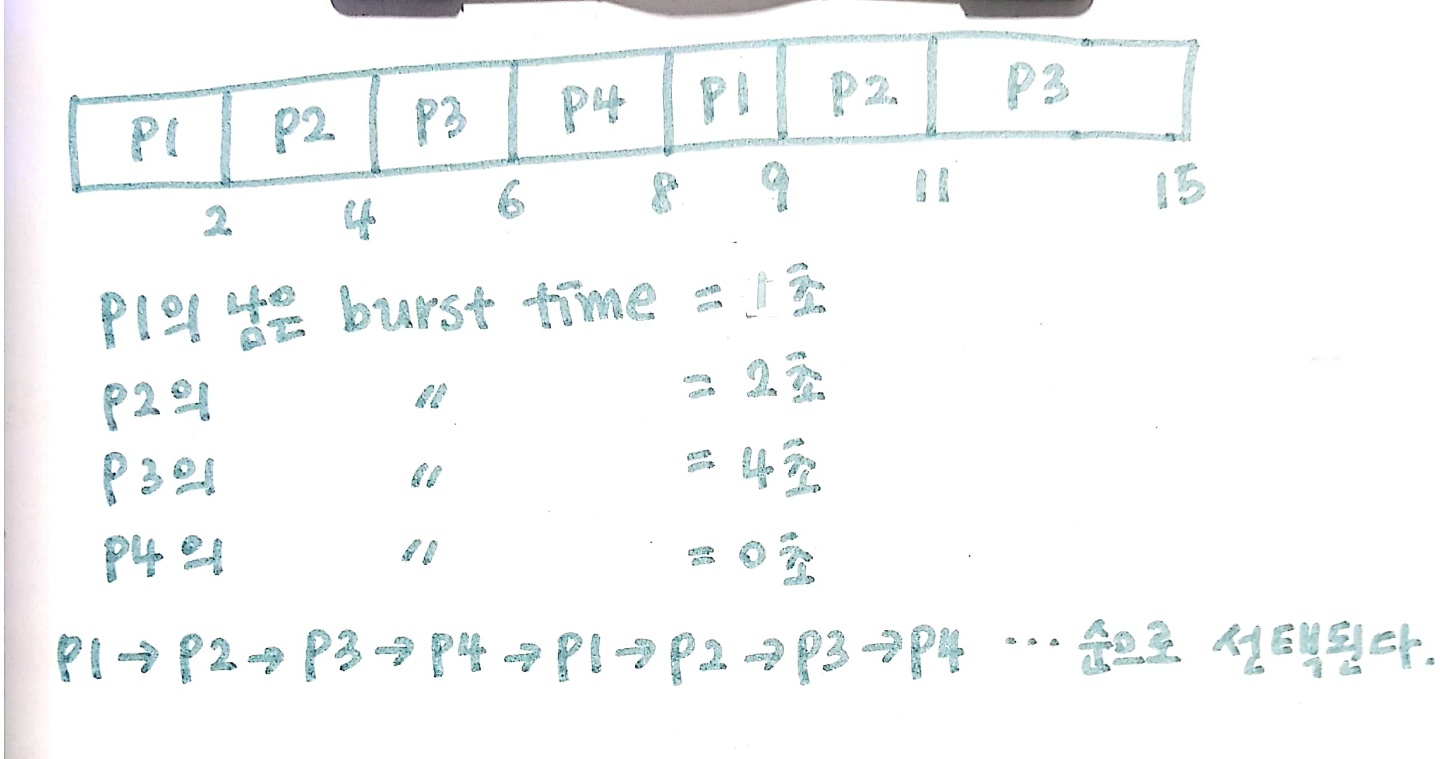 P1 P2 P3 P4 P1 P2 P3
2 4 6 8 9 11 15
P1의 남은 burst time = 1초
P2의 〃 = 2초
P3의 〃 = 4초
P4의 〃 = 0초
P1→P2→P3→P4→P1→P2→P3→P4 ··· 순으로 선택된다.